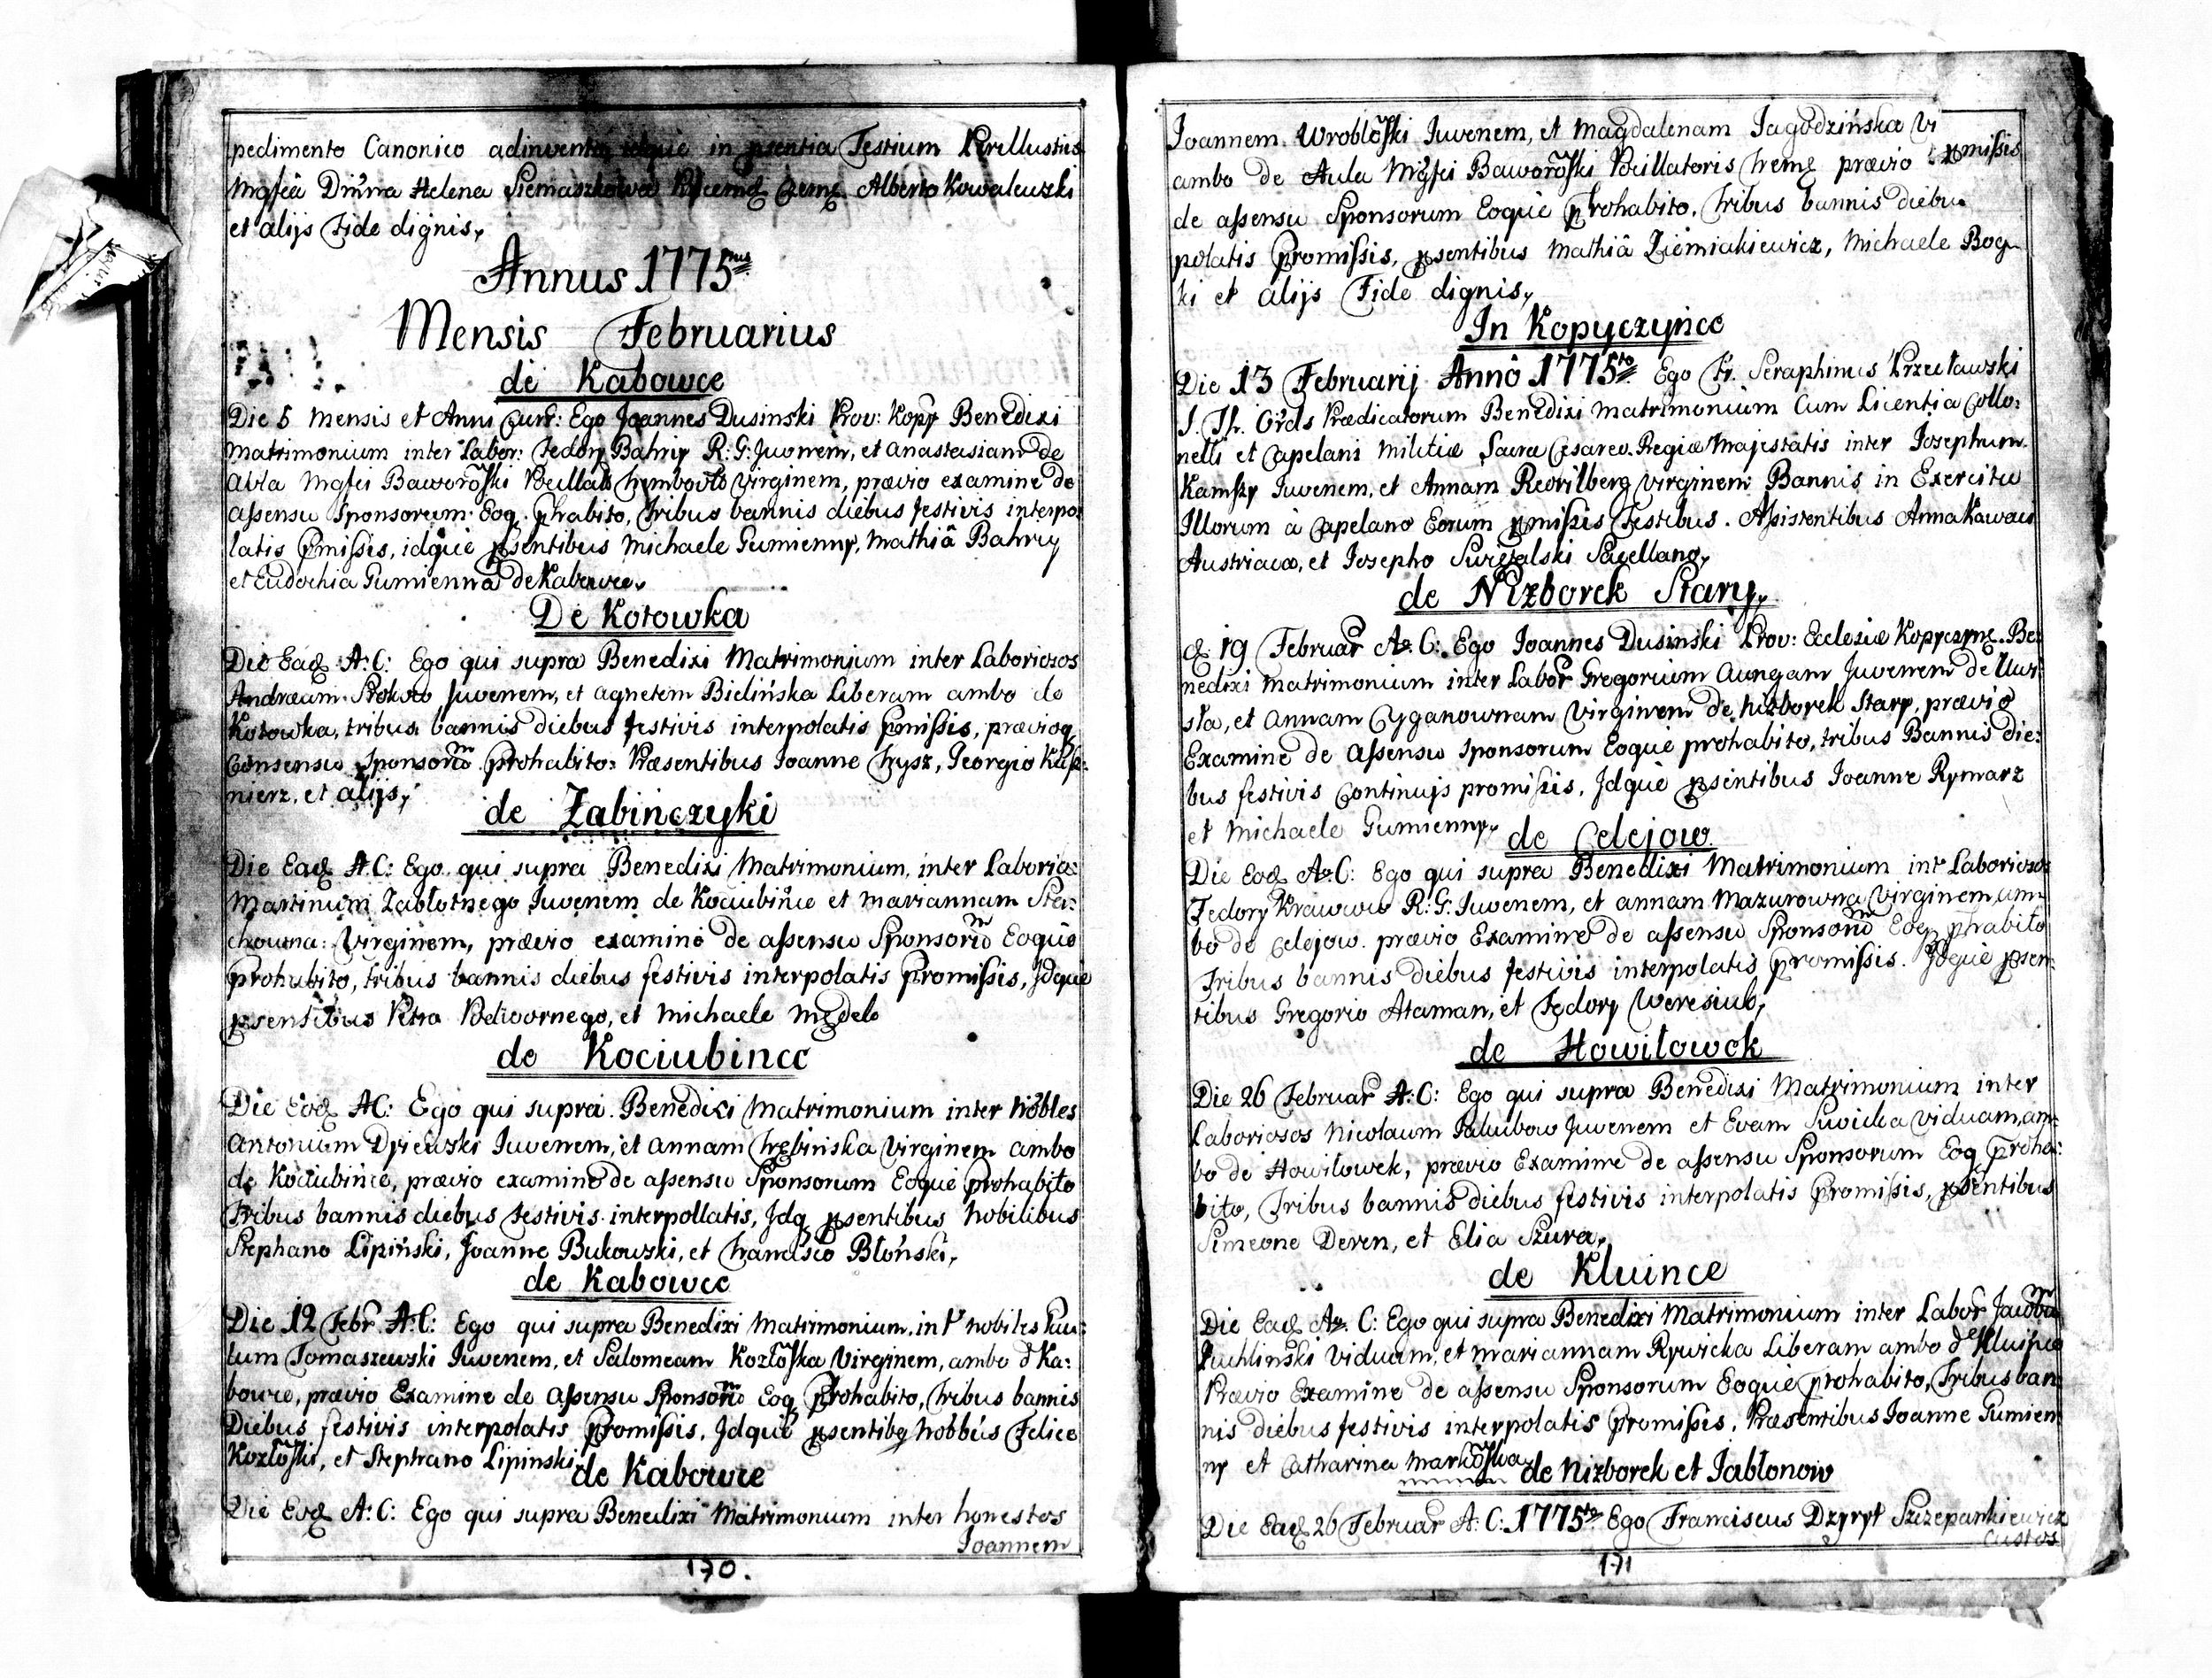 pedimento Canonico adinvento idquè in psentia Testium Perillustris
Mgfca Dnna Helena Siemaszkowa Alberto Kowalewski
et alijs Fide dignis,
Annus 1775nus
Mensis Februarius
de Kabowce
Die 5 Mensis et Anni Curr: Ego Joannes Dusinski Prov: Kopy Benedixi
Matrimonium inter Labor: Fedory Bahriy R: G: Juvenem, et Anastasiam de
Aula Mgfci Baworoski Virginem, prævio examine de
assensu Sponsorum Eoq. phabito, Tribus bannis diebus festivis interpo:
latis pmissis, idquè psentibus Michaele Gumienny, Mathiâ Bahriy
et Eudochia Gumienna de Kabowce,
De Kotowka
Die Eadẽ A: C: Ego qui supra Benedixi Matrimonium inter Laboriosos
Andræam Juvenem, et Agnetem Bielińska Liberam ambo de
Kotowka, tribus bannis diebus festivis interpolatis pmissis, prævioq
Consensu Sponsorũ prohabito: Præsentibus Joanne Hrysz, Georgio Kuß:
nierz, et alijs,
de Zabinczyki
Die Eadẽ A: C: Ego qui supra Benedixi Matrimonium, inter Laborio:
Martinum Zabłotnego Juvenem de Kociubińce et Mariannam Sta:
chowna: Virginem, prævio examine de assensu Sponsorũ Eoquè
prohabito, tribus bannis diebus festivis interpolatis promissis, Jdquè
psentibus Petro Podwornego, et Michaele Mędela
de Kociubincc
Die Eadẽ A C: Ego qui supra Benedixi Matrimonium inter Nobles
Antonium Juvenem, et Annam Trębińska Virginem ambo
de Kociubińce, prævio examine de assensu Sponsorum Eoquè prohabito
Tribus bannis diebus festivis interpollatis, Jdq psentibus Nobilibus
Stephano Lipiński, Joanne Bukowski, et Francisco Błoński,
de Kabowcc
Die 12 Febr A: C: Ego qui supra Benedixi Matrimonium int nobiles Pau:
lum Tomaszewski Juvenem, et Salomeam Kozłoska Virginem, ambo d Ka:
bowce, prævio Examine de Assensu Sponsorũ Eoq Prohabito, Tribus bannis
Diebus festivis interpolatis promissis, Jdquè psentibq Nobbus Felice
Kozłoski, et Stephano Lipinski,
de Kabowce
Die Eadẽ A: C: Ego qui supra Benedixi Matrimonium inter honestos
Joannem
170.
Joannem Wrobloski Juvenem, et Magdalenam Jagodzińska Vi
ambo de Aula Mgfci Baworoski prævio pmissis
de assensu Sponsorum Eoquè prohabito, Tribus bannis diebu
polatis promissis, psentibus Mathiâ Ziemiakiewicz, Michaele Bog
ki et alijs Fide dignis,
In Kopyczyńce
Die 13 Februarij Anno 1775to Ego Fr. Seraphinus Przecławski
S. Th. Ords Prædicatorum Benedixi Matrimonium Cum Licentia Collo:
nelli et Capelani Militiæ Sacra Cæsareo Regiæ Majestatis inter Josephum
Kamszy Juvenem, et Annam Revrilberg Virginem Bannis in Exercitu
Illorum à Capelano Eorum pmissis Testibus. Assistentibus Anna Kawai
Austriaca, et Josepho Sacellano,
de Nizborek Stary,
d. 19 Februar A. C: Ego Joannes Dusinski Prov: Ecclesiæ Kopyczynẽ Be:
nedixi Matrimonium inter Labor Gregorium Juvenem de Uwi:
sła, et Annam Cyganownam Virginem de Nizborek Stary, prævio
Examine de assensu Sponsorum Eoquè prohabito, tribus Bannis die:
bus festivis continuis promissis, Jdquè psentibus Joanne Rymarz
et Michaele Gumienny,
de Celejow
Die Eadẽ A: C: Ego qui supra Benedixi Matrimonium int Laboriosos
Fedory Krawciw R: G: Juvenem, et Annam Mazurowna Virginem am
bo de Celejow. prævio Examine de assensu Sponsorũ Eoq phabito
Tribus bannis diebus festivis interpolatis promissis. Jdquè psen:
tibus Gregorio Ataman, et Fedory Weresiub,
de Howiłowek
Die 26 Februar A: C: Ego qui supra Benedixi Matrimonium inter
Laboriosos Nicolaum Jakubow Juvenem et Evam Viduam, am:
bo de Howiłowek, prævio Examine de assensu Sponsorum Eoq proha:
bito, Tribus bannis diebus festivis interpolatis promissis, psentibus
Simeone Deren, et Elia Szura,
de Kluince
Die Eadẽ A. C: Ego qui supra Benedixi Matrimonium inter Labor Jacobũ
Puchlinski Viduum, et Mariannam Rywicka Liberam ambo de Kluince
Prævio Examine de assensu Sponsorum Eoquè prohabito, Tribus ban
nis diebus festivis interpolatis promissis, Præsentibus Joanne Gumien
ny et Catharina Markoska,
de Nizborek et Jabłonow
Die Eadẽ 26 Februar A: C: 1775to Ego Franciscus Dzyryt Szczepankiewicz
Custos
171